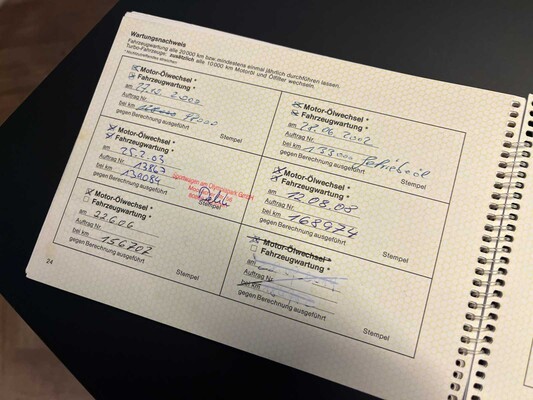 Wartungsnachweis
Fahrzeugwartung alle 20 000 km bzw. mindestens einmal jährlich durchführen lassen.
Turbo-Fahrzeuge: zusätzlich alle 10 000 km Motoröl und Ölfilter wechseln.
Motor-Ölwechsel *
Fahrzeugwartung *
am 27.12.2000
Auftrag Nr.
bei km
gegen Berechnung ausgeführt
Stempel
Motor-Ölwechsel *
Fahrzeugwartung *
am 28.06.2002
Auftrag Nr.
bei km 133000
gegen Berechnung ausgeführt
Stempel
Motor-Ölwechsel *
Fahrzeugwartung *
am 25.2.03
Auftrag Nr. 13867
bei km 138084
gegen Berechnung ausgeführt
Sportwagen am Olympiapark GmbH
Stempel
Motor-Ölwechsel *
Fahrzeugwartung *
am 12.08.08
Auftrag Nr.
bei km 168974
gegen Berechnung ausgeführt
Stempel
Motor-Ölwechsel *
Fahrzeugwartung *
am 22.6.06
Auftrag Nr.
bei km 156707
gegen Berechnung ausgeführt
Stempel
Motor-Ölwechsel *
Fahrzeugwartung *
am
Auftrag Nr.
bei km
gegen Berechnung ausgeführt
Stempel
24